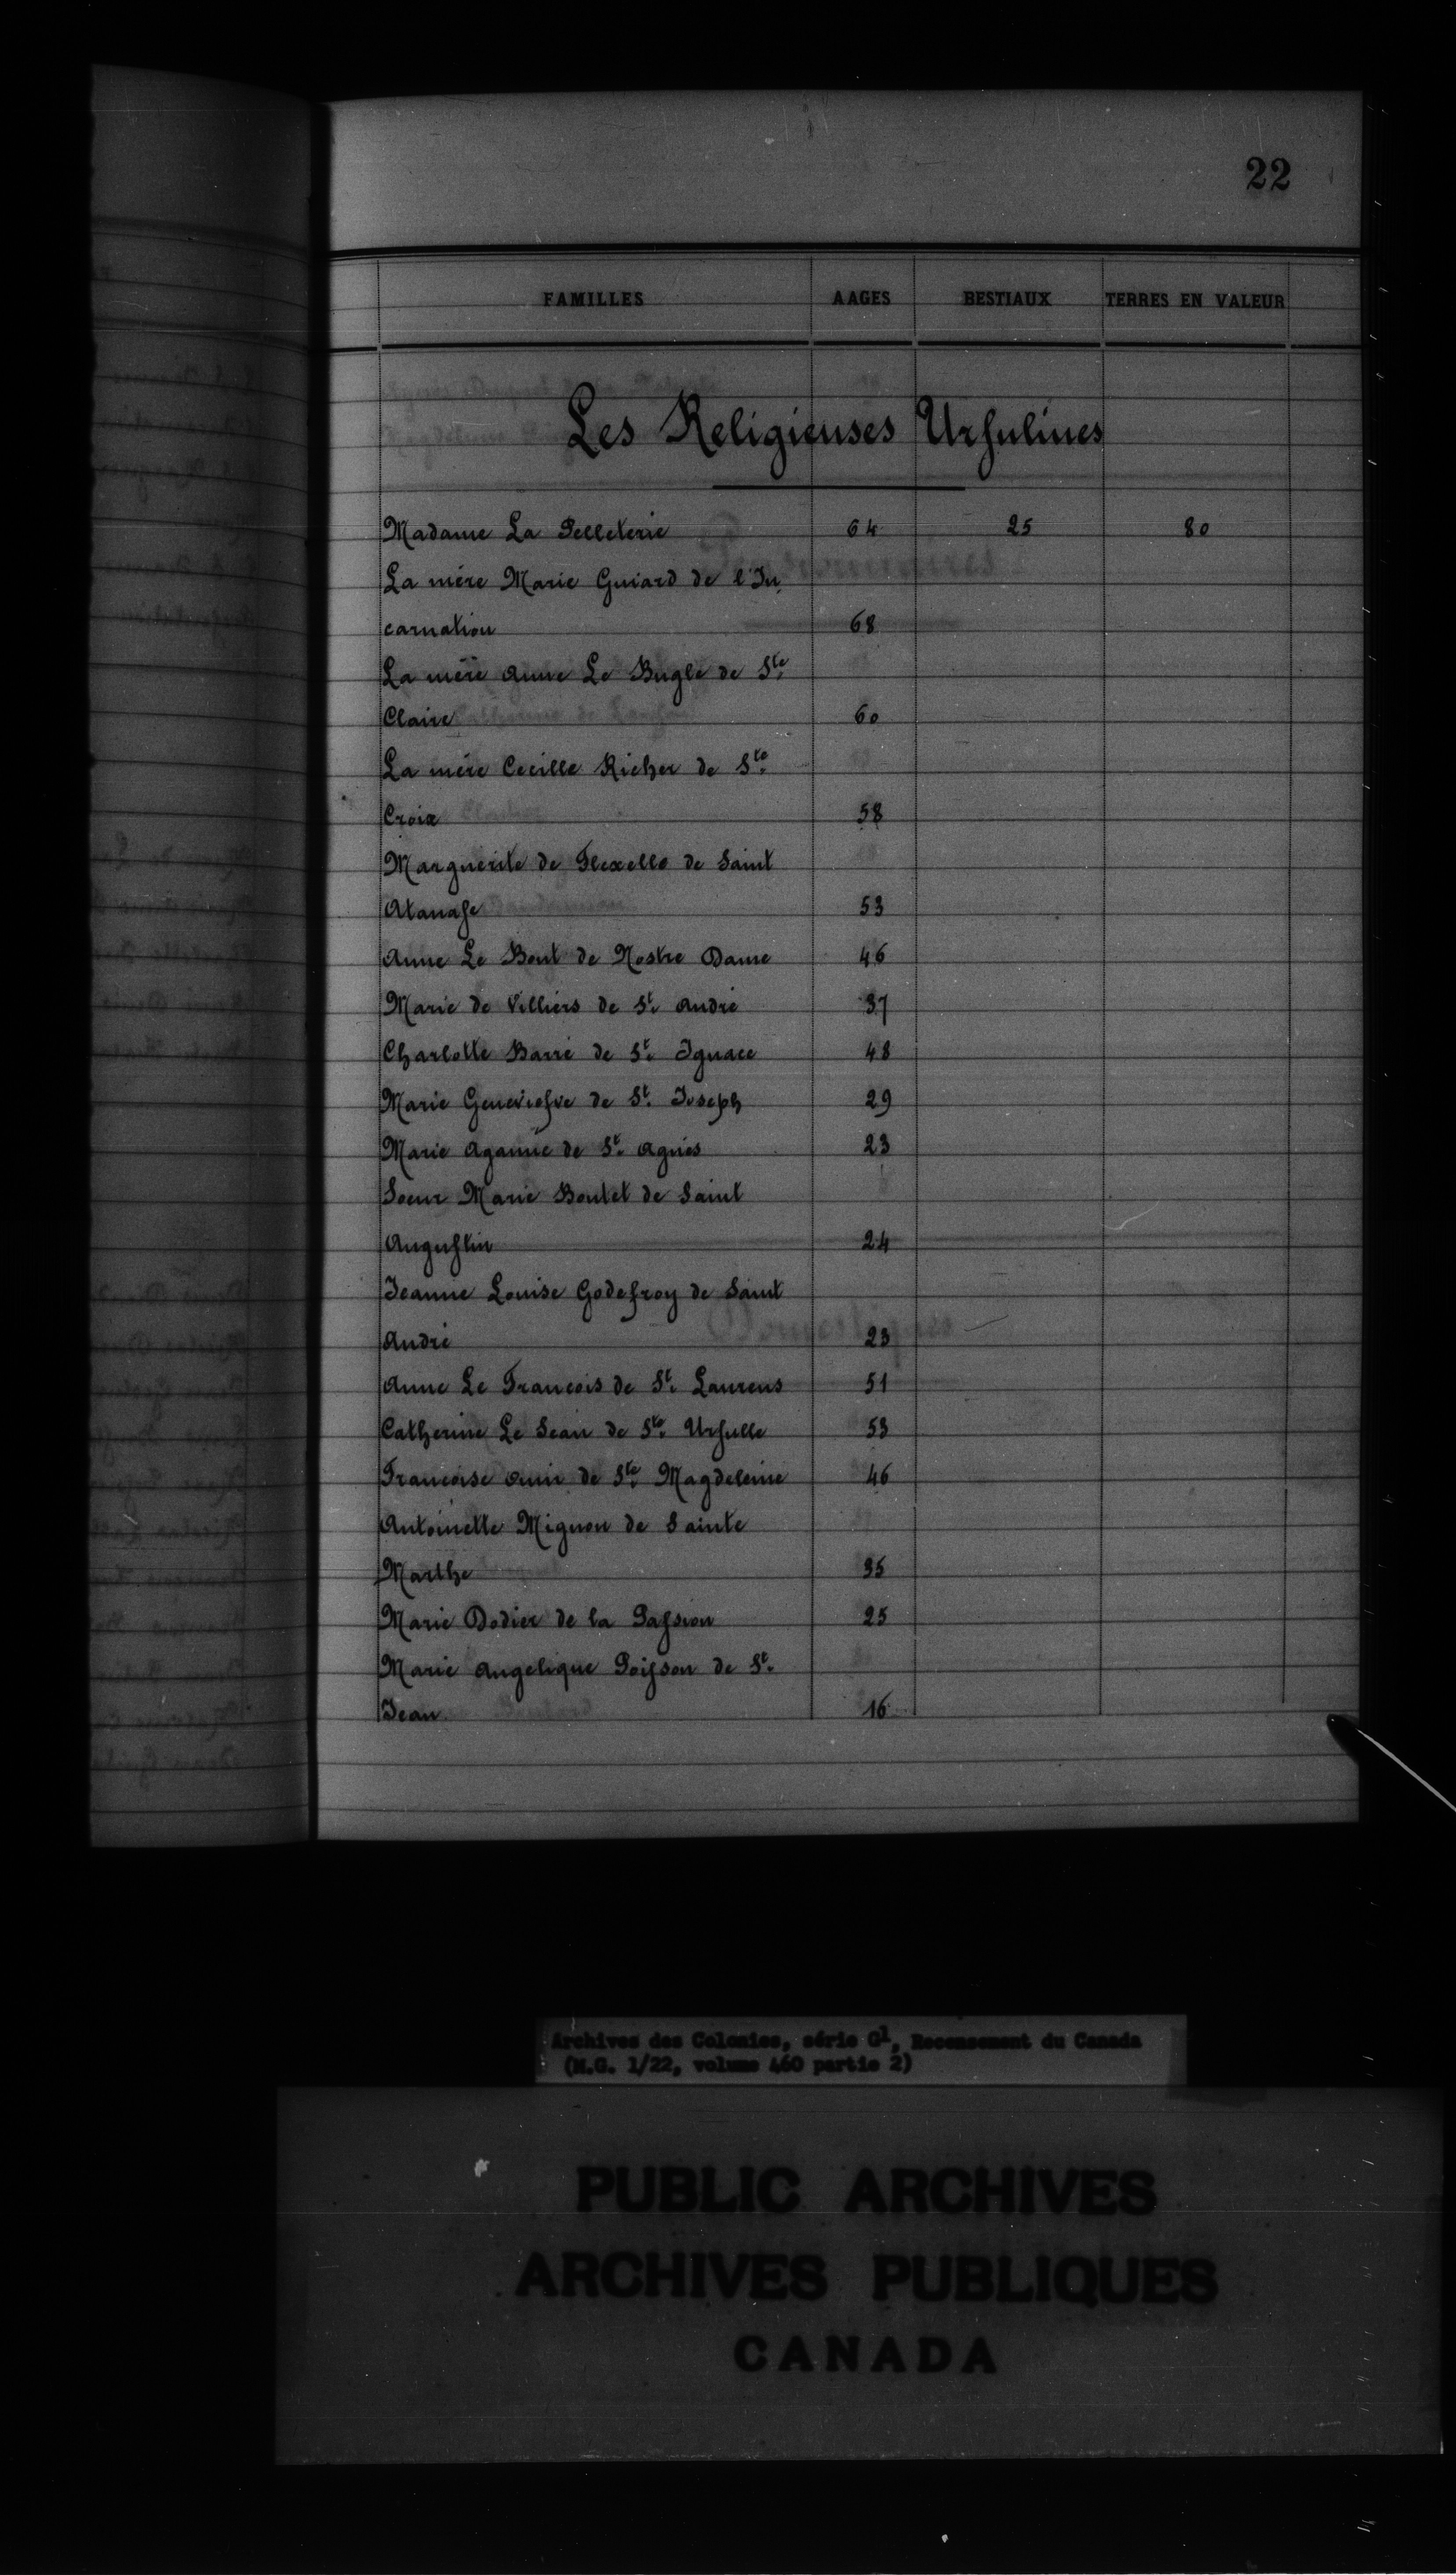 22
FAMILLES AAGES BESTIAUX TERRES EN VALEUR
Les Religieuses Ursulines
Madame La Pelleterie 64 25 80
La mére Marie Guiard de l'In
carnation 68
La mére Anne Le Bugle de Ste
Claire 60
La mére Cecille Richer de Ste
Croix 58
Marguerite de Flexelle de Saint
Atanase 53
Anne Le Bout de Nostre Dame 46
Marie de Villiers de St. André 37
Charlotte Barré de St. Ignace 48
Marie Geneviesve de St. Joseph 29
Marie Aganné de St. Agnés 23
Soeur Marie Boutet de Saint
Augustin 24
Jeanne Louise Godefroy de Saint
André 23
Anne Le Francois de St. Laurens 51
Catherine Le Seau de Ste. Ursulle 53
Francoise Ouin de Ste. Magdeleine 46
Antoinette Mignon de Sainte
Marthe 35
Marie Dodier de la Passion 25
Marie Angelique Poisson de St.
Jean 16
Archives des Colonies, série G1, Recensement du Canada
(M.G. 1/22, volume 460 partie 2)
PUBLIC ARCHIVES
ARCHIVES PUBLIQUES
CANADA